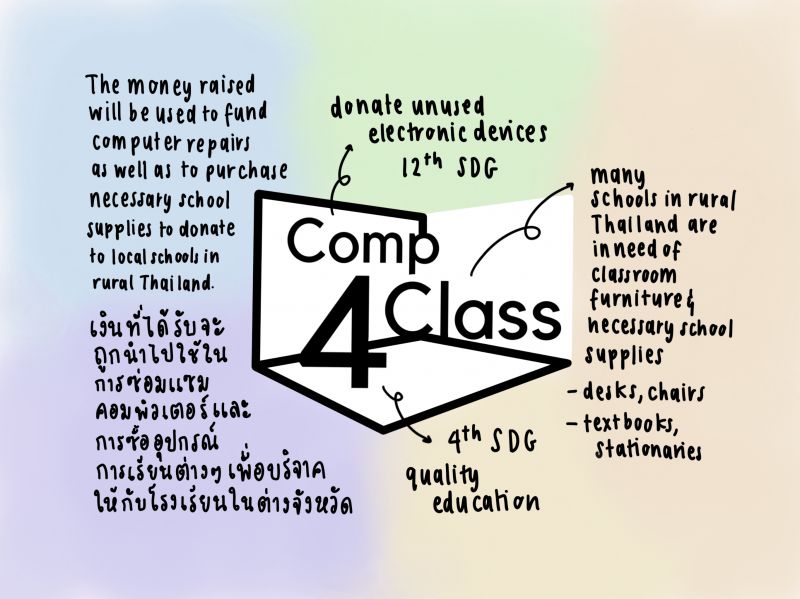 The money raised
will be used to fund
computer repairs
as well as to purchase
necessary school
supplies to donate
to local schools in
rural Thailand.
เงินที่ได้รับจะ
ถูกนำไปใช้ใน
การซ่อมแซม
คอมพิวเตอร์และ
การซื้ออุปกรณ์
การเรียนต่างๆ เพื่อบริจาค
ให้กับโรงเรียนในต่างจังหวัด
donate unused
electronic devices
12th SDG
Comp
4Class
4th SDG
quality
education
many
schools in rural
Thailand are
in need of
classroom
furniture &
necessary school
supplies
- desks, chairs
- textbooks,
stationaries